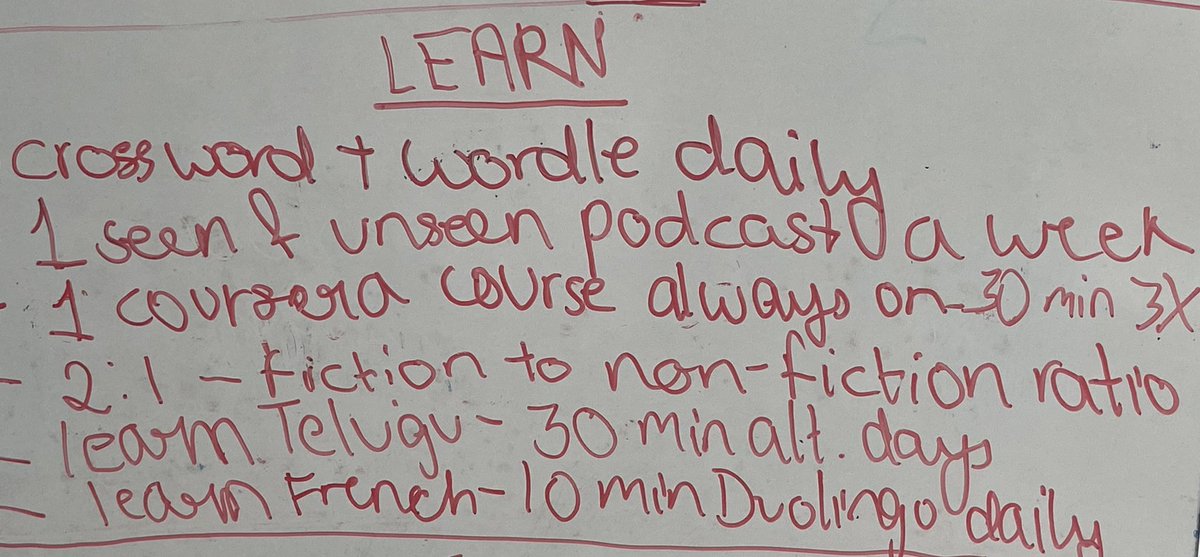 LEARN
crossword + wordle daily
1 seen & unseen podcast a week
- 1 coursera course always on - 30 min 3X
- 2:1 - fiction to non-fiction ratio
- learn Telugu - 30 min alt. days
- learn French - 10 min Duolingo daily